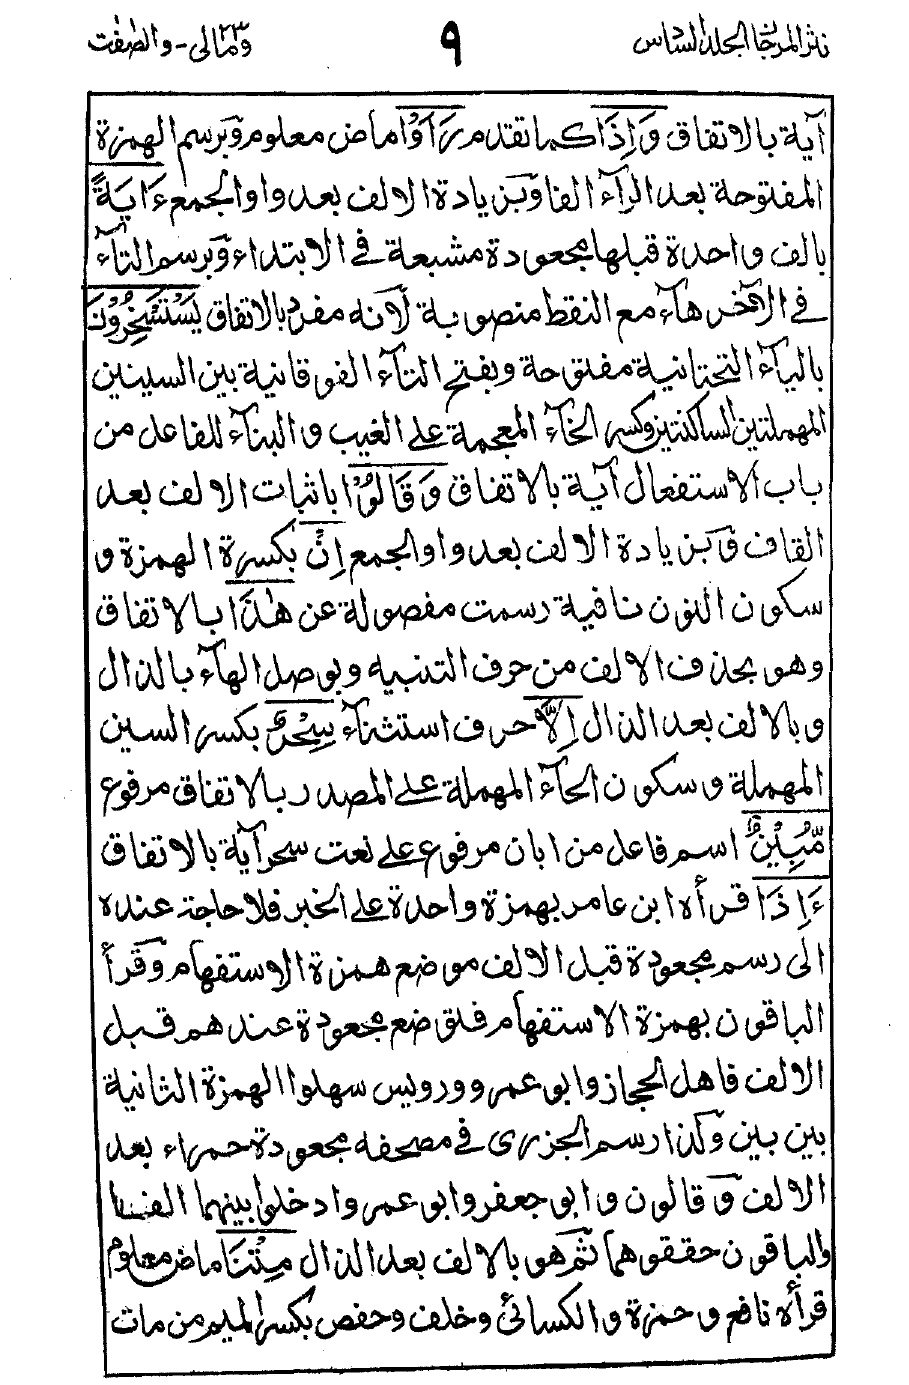 نثر المرجان المجلد السادس ٩ ومالی ٢٣ - والصّٰفّٰت
آية بالاتفاق وَإِذَا كما تقدم رَأَوْا ماض معلوم وَبرسم الهمزة
المفتوحة بعد الرآء الفا وَبزيادة الالف بعد واو الجمع ءَايَةً
بالف واحدة قبلها مجعودة مشبعة في الابتداء وَبرسم التآء
في الآخر هآء مع النقط منصوبة لانه مفرد بالاتفاق يَسْتَسْخِرُوْنَ
باليآء التحتانية مفتوحة وبفتح التآء الفوقانية بين السينين
المهملتين الساكنتين وكسر الخآء المعجمة على الغيب والبنآء للفاعل من
باب الاستفعال آية بالاتفاق وَقَالُوْا باثبات الالف بعد
القاف وَبزيادة الالف بعد واو الجمع اِنْ بكسرة الهمزة و
سكون النون نافية رسمت مفصولة عن هٰذَا بالاتفاق
وهو بحذف الالف من حرف التنبيه وبوصل الهآء بالذال
وبالالف بعد الذال اِلَّا حرف استثنآء سِحْرٌ بكسر السين
المهملة وسكون الحآء المهملة على المصدر بالاتفاق مرفوع
مُّبِيْنٌ اسم فاعل من ابان مرفوع على نعت سحر آية بالاتفاق
ءَاِذَا قرأه ابن عامر بهمزة واحدة على الخبر فلا حاجة عنده
الى رسم مجعودة قبل الالف موضع همزة الاستفهام وقرأ
الباقون بهمزة الاستفهام فتوضع مجعودة عندهم قبل
الالف فاهل الحجاز وابو عمر وورويس سهلوا الهمزة الثانية
بين بين وكذا رسم الجزرى في مصحفه مجعودة حمراء بعد
الالف وَقالون وابو جعفر وابو عمر وادخلوا بينهما الفا
والباقون حققوهما ثم هو بالالف بعد الذال مِتْنَا ماض معلوم
قرأه نافع وحمزة والكسائى وخلف وحفص بكسر الميم من مات